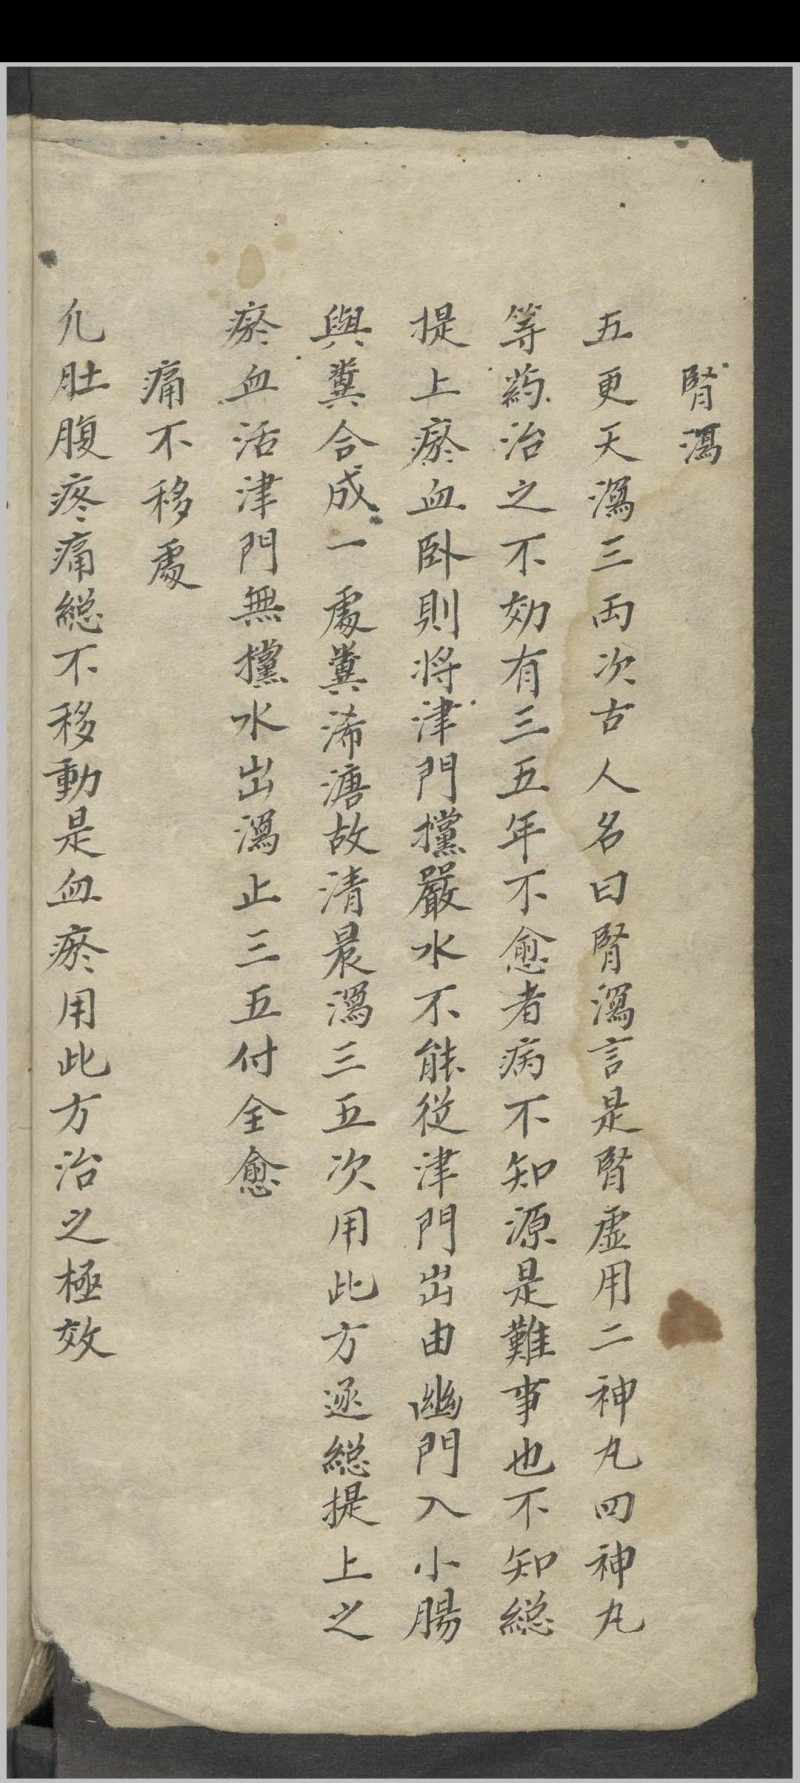 腎瀉
五更天瀉三兩次古人名曰腎瀉言是腎虛用二神丸四神丸
等药治之不効有三五年不愈者病不知源是難事也不知総
提上瘀血卧則将津門攩嚴水不能從津門出由幽門入小腸
與糞合成一處糞浠溏故清晨瀉三五次用此方逐総提上之
瘀血活津門無攩水出瀉止三五付全愈
痛不移處
凢肚腹疼痛総不移動是血瘀用此方治之極效